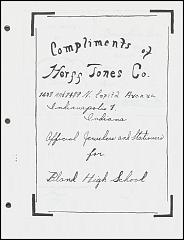 Compliments of
Herff Jones Co.
N. Capitol Avenue
Indianapolis 7,
Indiana
Official Jewelers and Stationers
for
Bland High School